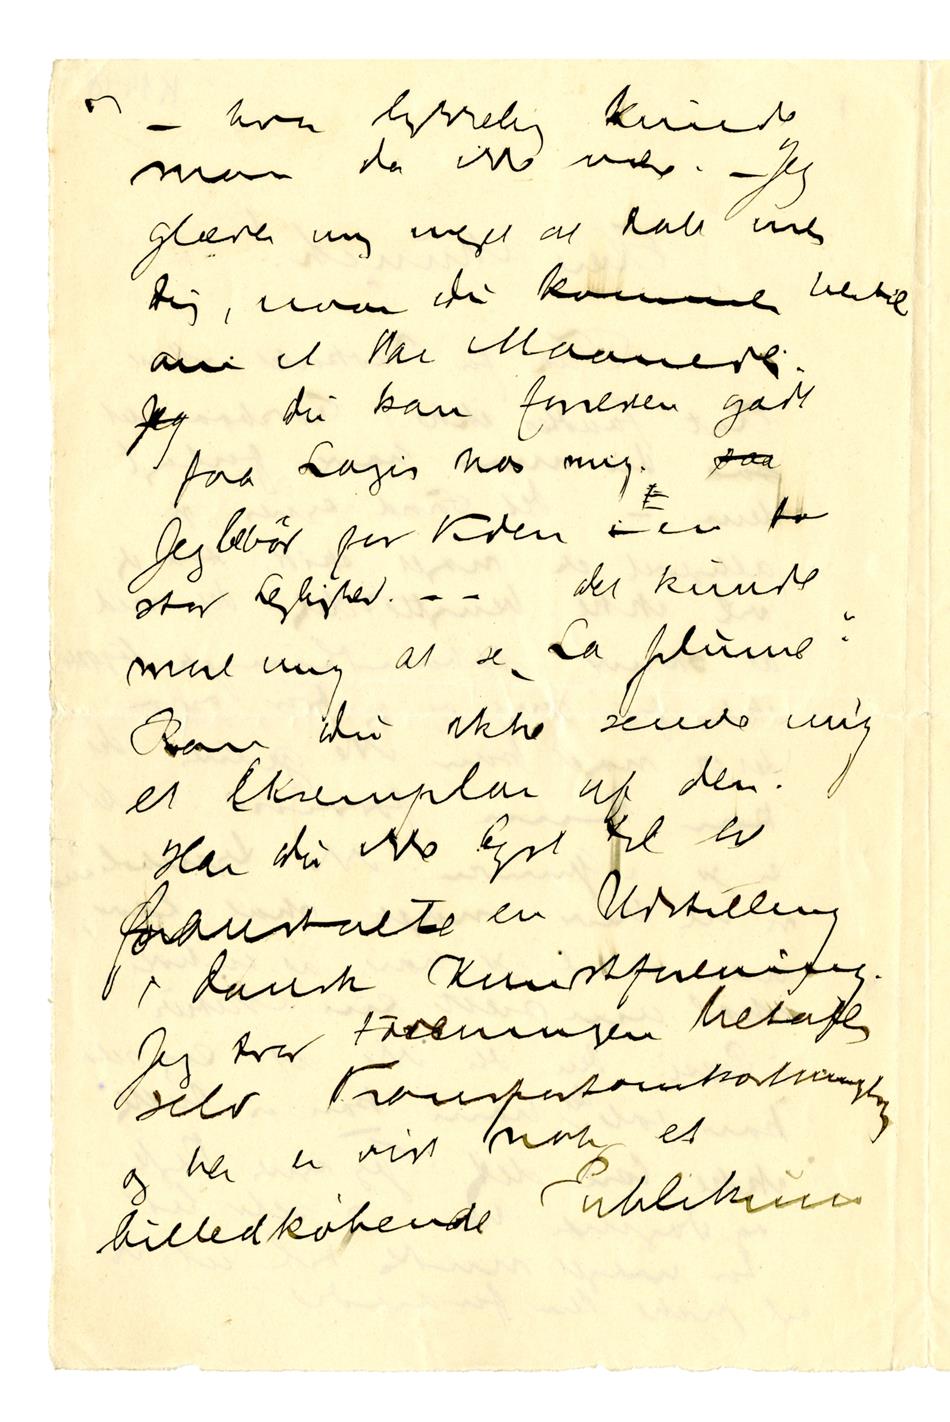 – hvor lykkelig kunde
man da ikke være. – Jeg
glæder mig meget at tale med
Dig, naar du kommer hertil
om et Par Maaneder.
Jeg du kan forresten godt
faa Logis hos mig. saa
Jeg bebor for Tiden en to
stor Leglighed. – – det kunde
more mig at se „La plume"
Kan du ikke sende mig
et Eksemplar af den.
Har du ikke Lyst til at
foranstalte en Udstilling
i Dansk Kunstforening.
Jeg tror Foreningen betaler
selv Transportomkostninger
og her er vist nok et
billedkøbende Publikum